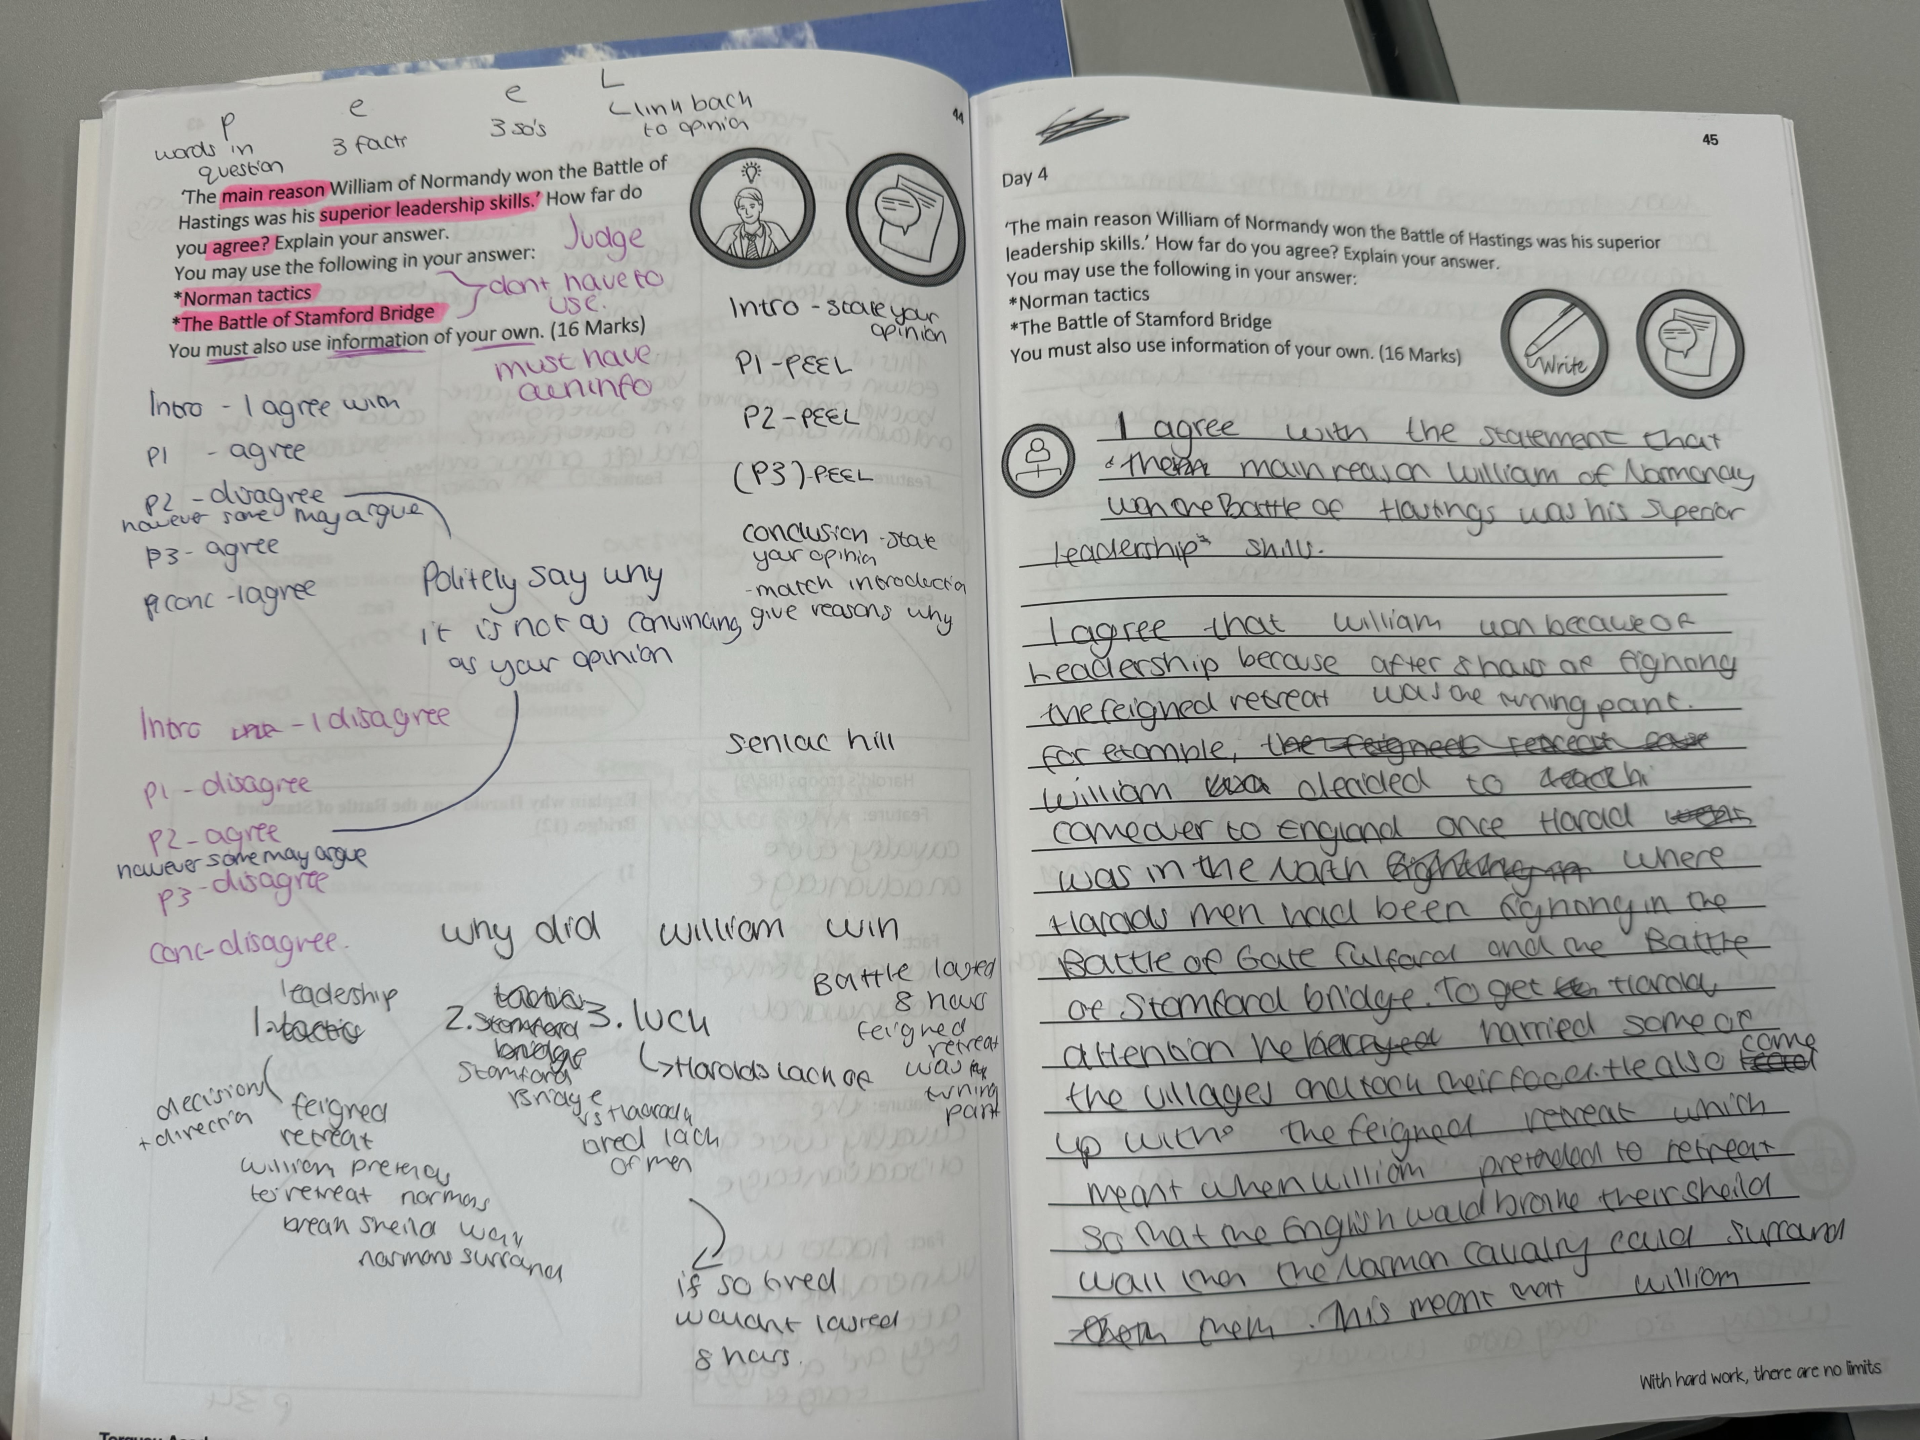 P e e L
words in question
3 facts
3 so's
link back
to opinion
44
'The main reason William of Normandy won the Battle of
Hastings was his superior leadership skills.' How far do
you agree? Explain your answer.
Judge
You may use the following in your answer:
*Norman tactics
*The Battle of Stamford Bridge
dont have to
use.
You must also use information of your own. (16 Marks)
must have
own info
Intro - I agree with
P1 - agree
P2 - disagree
however some may argue
P3 - agree
conc - I agree
Politely say why
it is not as convincing
as your opinion
Intro - I disagree
P1 - disagree
P2 - agree
however some may argue
P3 - disagree
conc - disagree.
Intro - state your
opinion
P1 - PEEL
P2 - PEEL
(P3) - PEEL
conclusion - state
your opinion
- match introduction
give reasons why
senlac hill
why did william win
leadership
1. tactics
decisions
+ direction
feigned
retreat
william pretends
to retreat normans
break sheild wall
normans surround
2. Stamford
bridge
Stamford
Bridge
3. luck
Harolds lack of
tired lack
of men
if so tired
wouldnt lasted
8 hours.
Battle lasted
8 hours
feigned
retreat
was the
turning
point
45
Day 4
'The main reason William of Normandy won the Battle of Hastings was his superior
leadership skills.' How far do you agree? Explain your answer.
You may use the following in your answer:
*Norman tactics
*The Battle of Stamford Bridge
You must also use information of your own. (16 Marks)
Write
I agree with the statement that
'the main reason William of Normandy
won the Battle of Hastings was his superior
leadership' skills.
I agree that william won because of
leadership because after 8 hours of fighting
the feigned retreat was the turning point.
for example, the feigned retreat
William decided to
come over to England once Harold
was in the North fighting in where
Harolds men had been fighting in the
Battle of Gate Fulford and the Battle
of Stamford bridge. To get Harold
attention he harried some of
the villages and took their food. He also came
up with the feigned retreat which
meant when william pretended to retreat
so that the English would broke their sheild
wall then the Norman Cavalry could surround
them them. This meant that william
With hard work, there are no limits